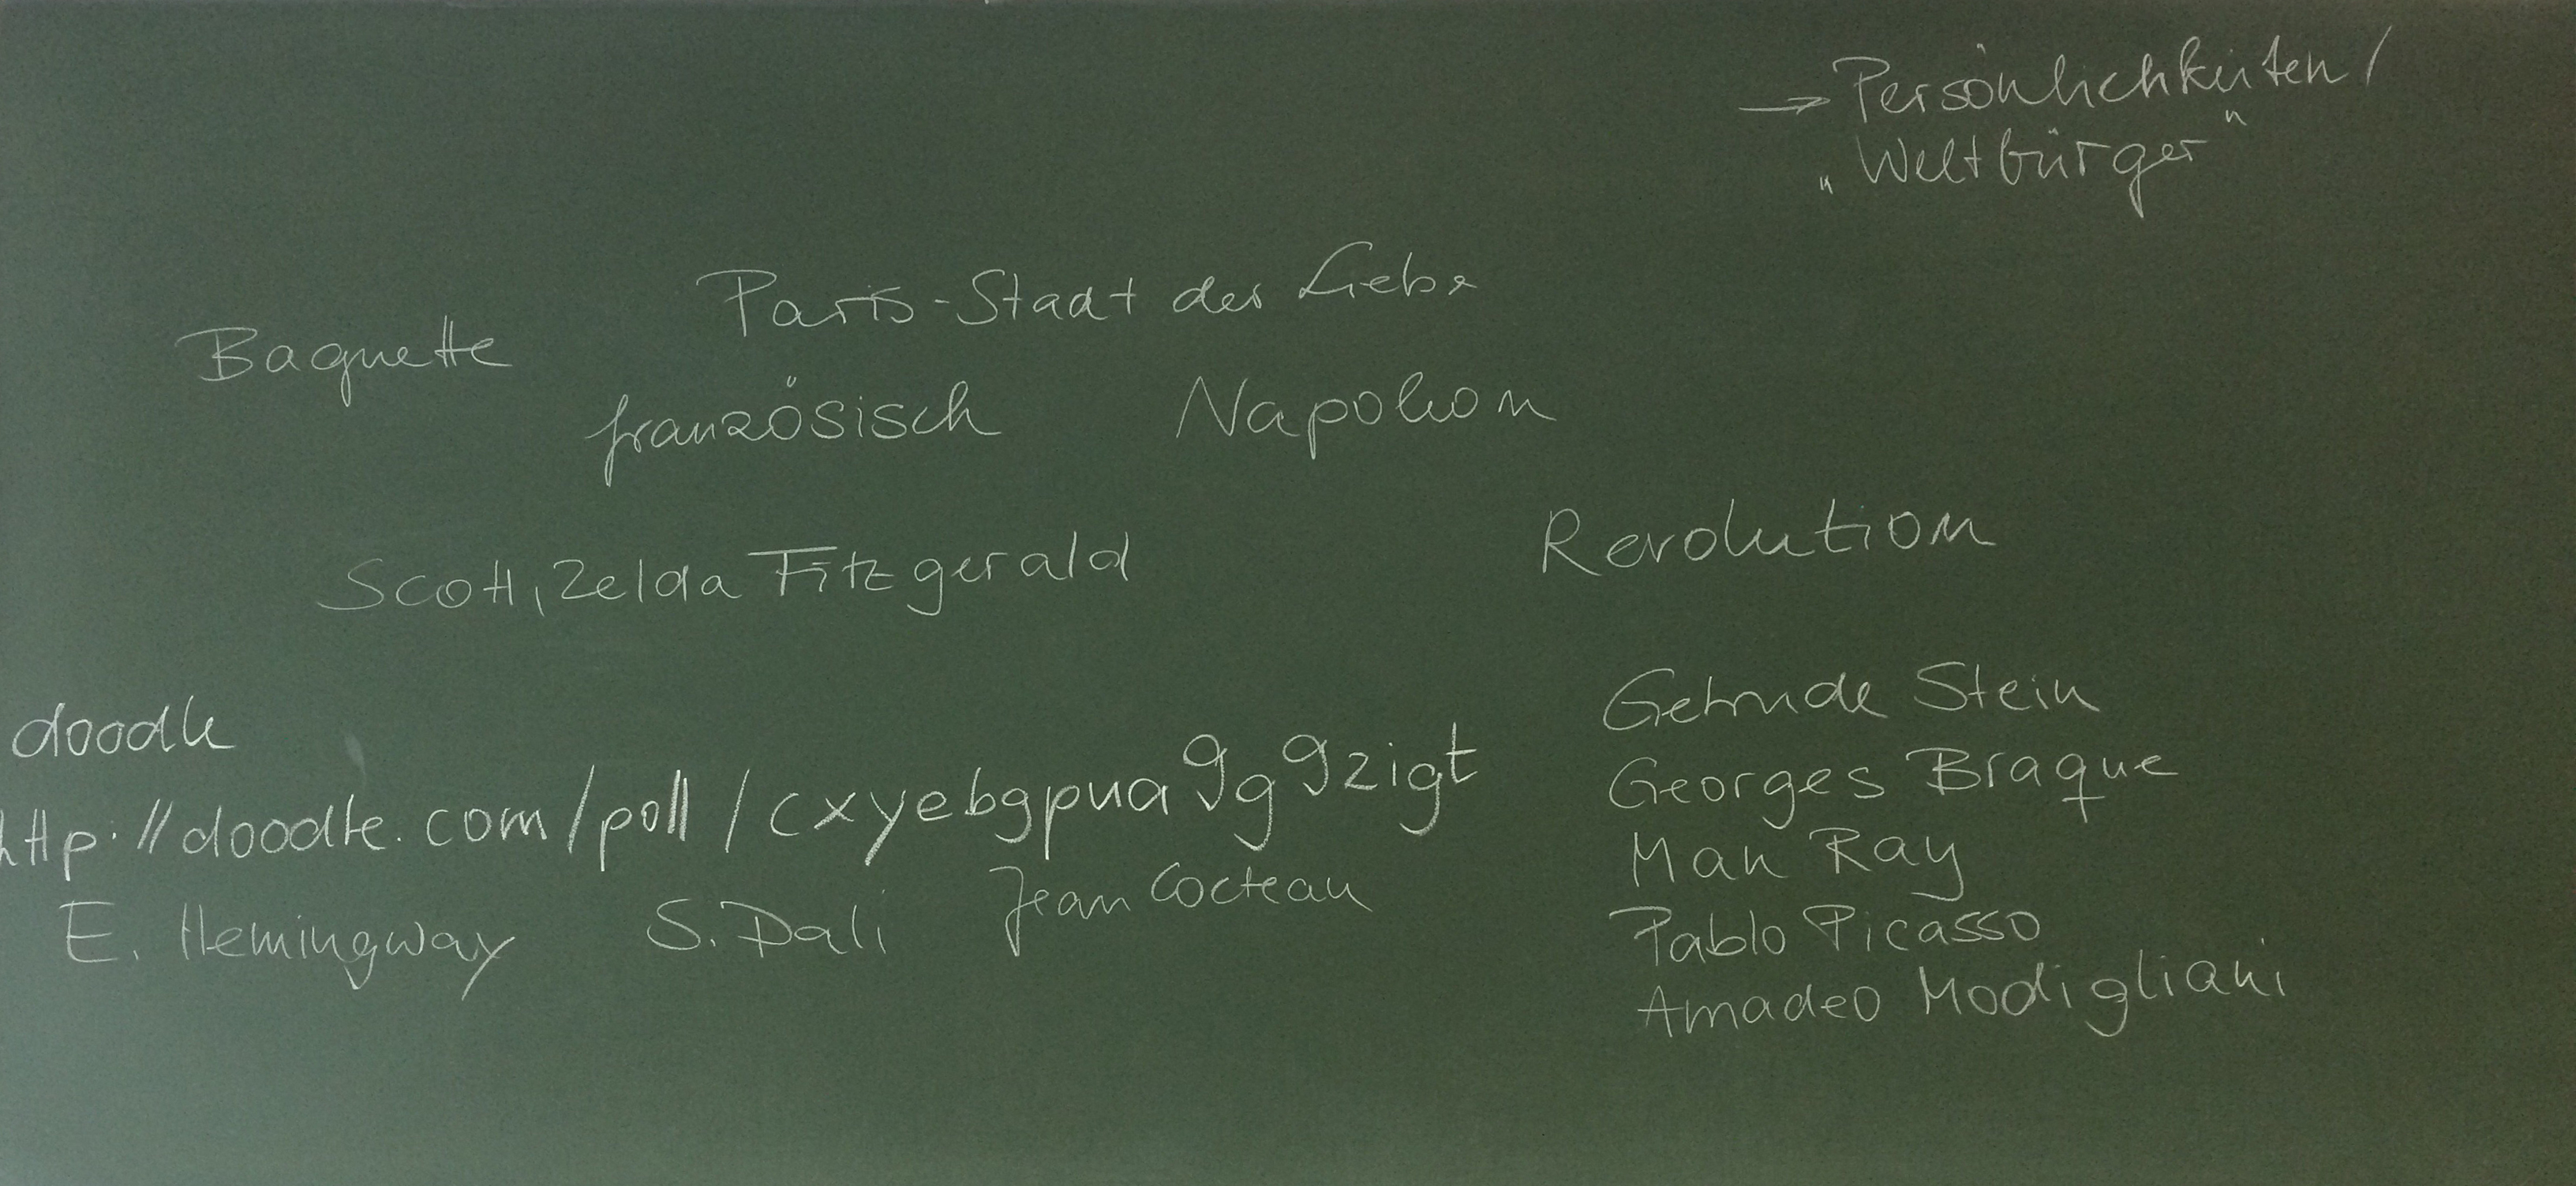 → Persönlichkeiten/
„Weltbürger"
Paris-Stadt der Liebe
Baguette
französisch Napoleon
Revolution
Scott, Zelda Fitzgerald
doodle
http://doodle.com/poll/cxyebgpua9g9zigt
E. Hemingway S. Dali Jean Cocteau
Getrude Stein
Georges Braque
Man Ray
Pablo Picasso
Amadeo Modigliani